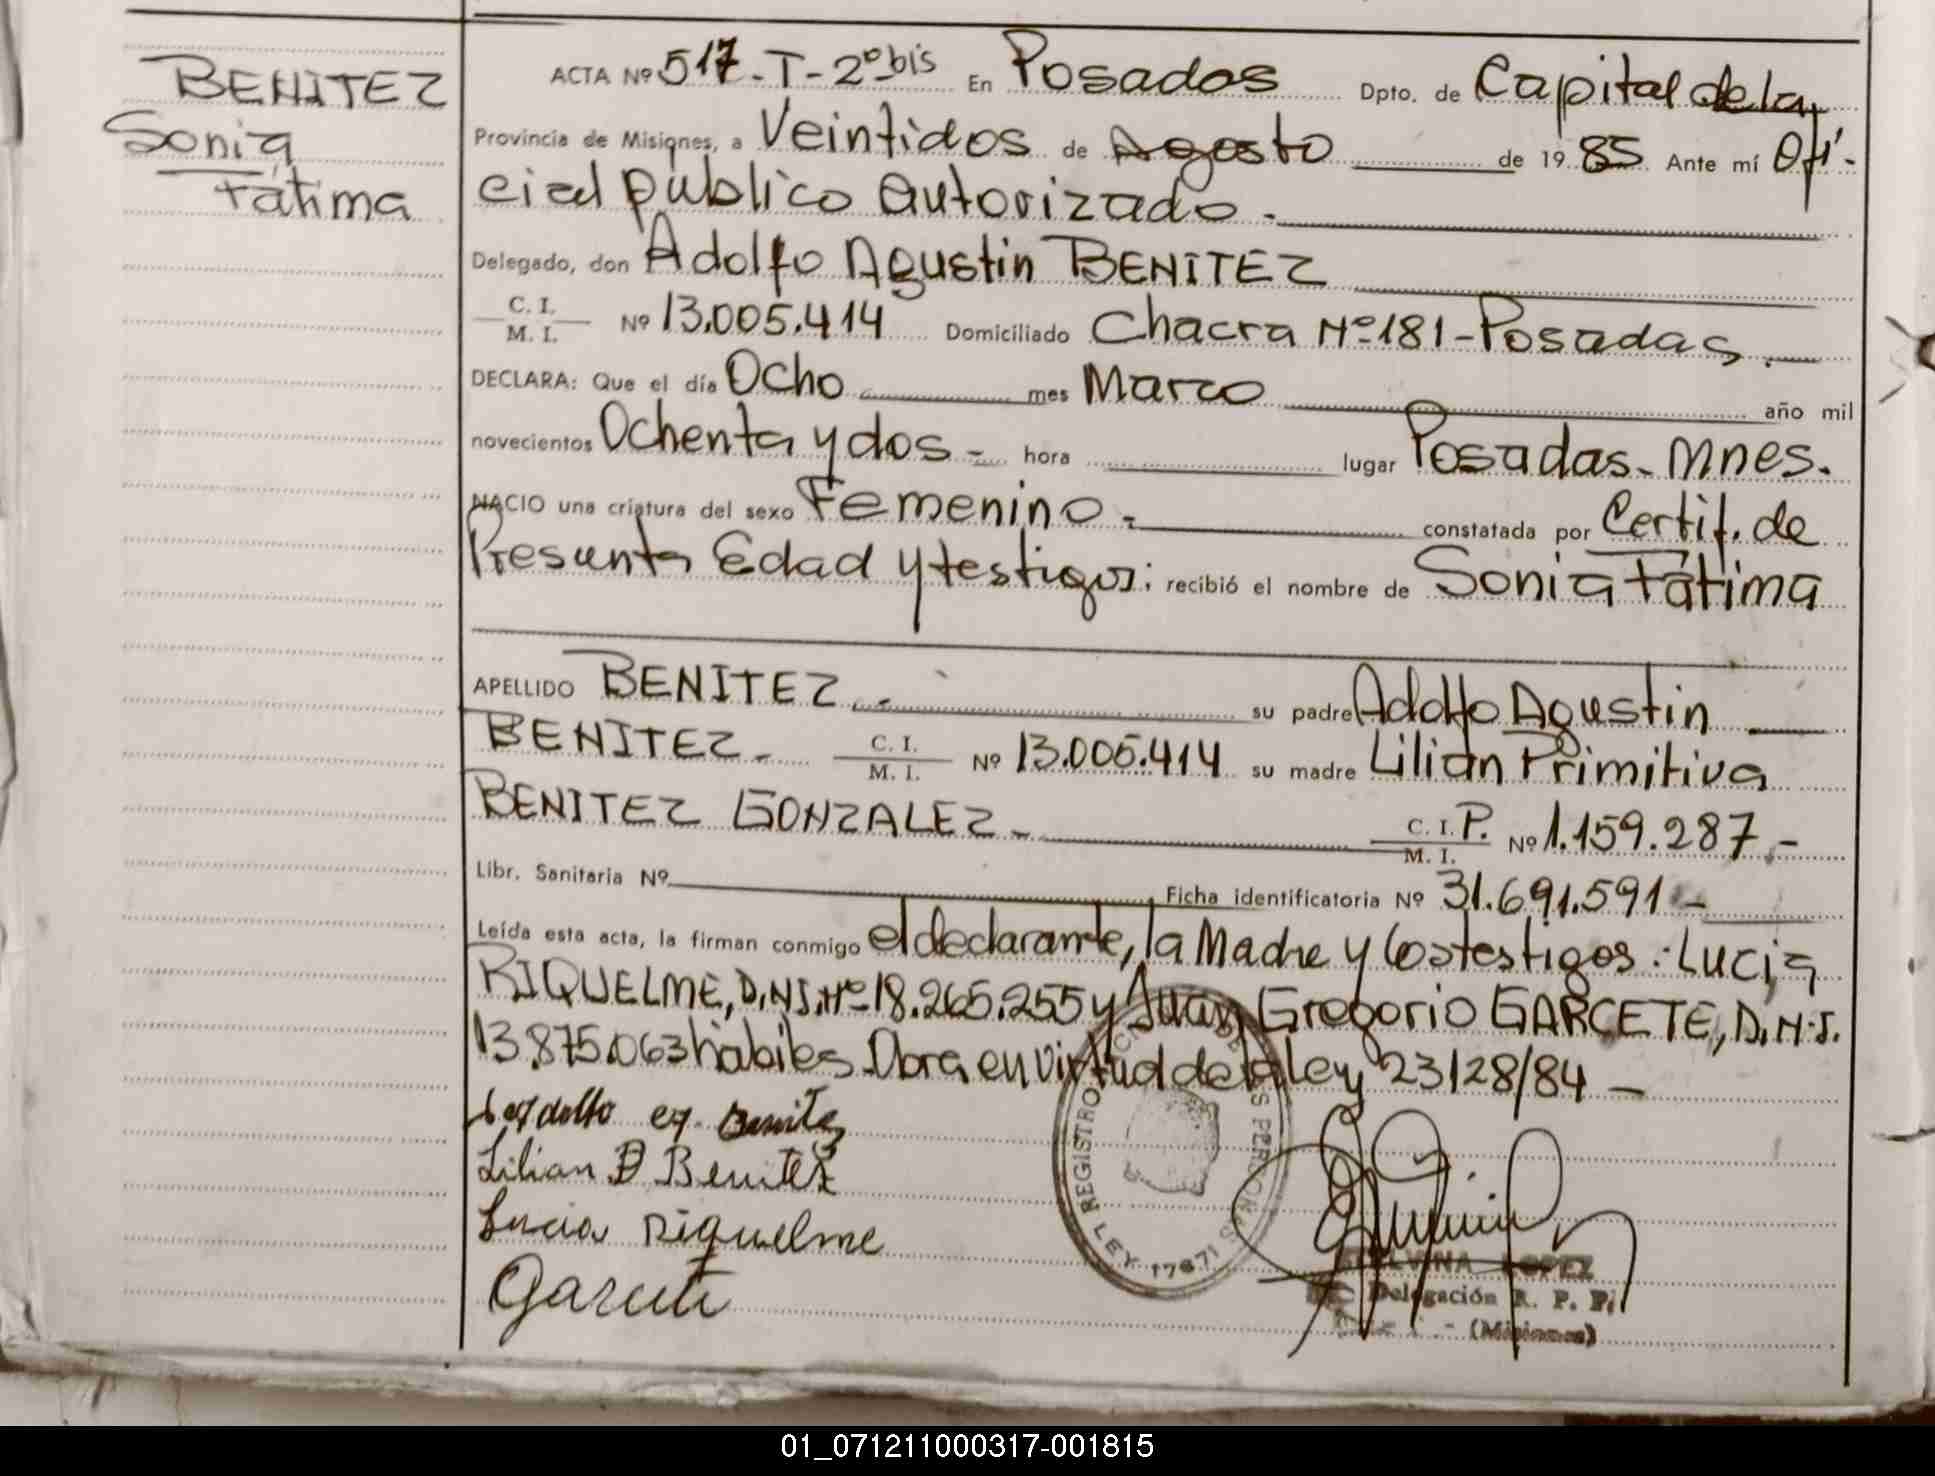 BENITEZ
Sonia
Fátima
ACTA Nº 517-T-2º bis En Posadas Dpto. de Capital de la
Provincia de Misiones, a Veintidos de Agosto de 1985 Ante mí Ofi-
cial público autorizado.-
Delegado, don Adolfo Agustin BENITEZ
C. I.
M. I. Nº 13.005.414 Domiciliado Chacra Nº 181-Posadas.
DECLARA: Que el día Ocho mes Marzo año mil
novecientos Ochenta y dos- hora lugar Posadas-Mnes.
NACIO una criatura del sexo Femenino.- constatada por Certif. de
Presunta Edad y testigos; recibió el nombre de Sonia Fátima
APELLIDO BENITEZ.- su padre Adolfo Agustin
BENITEZ- C. I. M. I. Nº 13.005.414 su madre Lilian Primitiva
BENITEZ GONZALEZ- C. I. P. M. I. Nº 1.159.287.-
Libr. Sanitaria Nº Ficha identificatoria Nº 31.691.591-
Leída esta acta, la firman conmigo el declarante, la Madre y los testigos: Lucia
RIQUELME, D.N.I. Nº 18.265.255 y Juan Gregorio GARCETE, D.N.I.
13.875.063 hábiles. Obra en virtud de la Ley 23128/84 -
Benitez
Lilian P Benitez
Lucia Riquelme
Garcete
REGISTRO DE LAS PERSONAS
LEY 17671
ELVINA LOPEZ
Delegación R. P. P.
(Misiones)
01_071211000317-001815